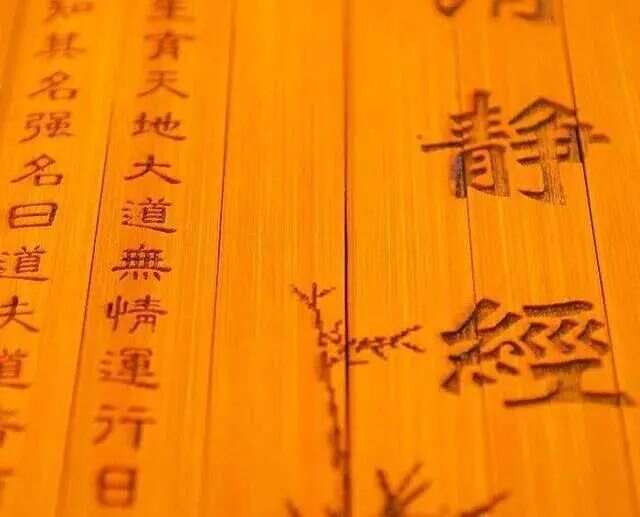 清靜經
生育天地大道無情運行日
知其名强名曰道夫道者